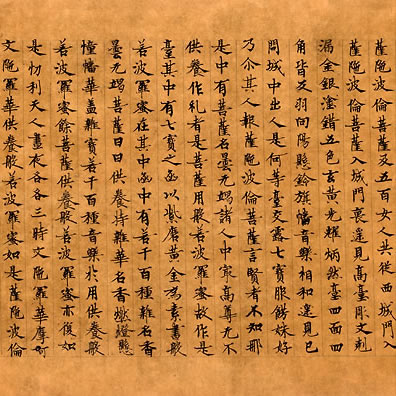 薩陁波倫菩薩及五百女人共從西城門入
薩陁波倫菩薩入城門裏遙見高臺彫文刻
漏金銀塗錯五色玄黃光耀炳然臺四面四
角皆反羽向陽懸鈴旗幡音樂相和遙見已
問城中出人是何等臺交露七寶服飾姝好
乃尒其人報薩陁波倫菩薩言賢者不知耶
是中有菩薩名曇无竭諸人中㝡高尊无不
供養作礼者是菩薩用般若波羅蜜故作是
臺其中有七寶之函以紫磨黃金為素書般
若波羅蜜在其中函中有若干百種雜名香
曇无竭菩薩日日供養持雜華名香燃燈懸
幢幡華盖雜寶若干百種音樂於用供養般
若波羅蜜餘菩薩供養般若波羅蜜亦復如
是忉利天人晝夜各各三時文陁羅華摩訶
文陁羅華供養般若波羅蜜如是薩陁波倫